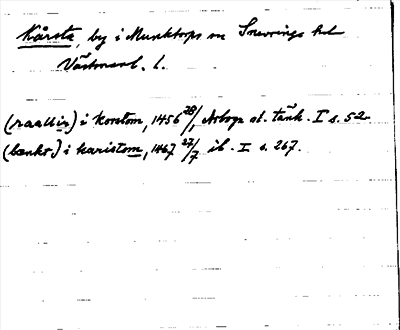 Kårsta, by i Munktorps sn Snevringe hd
Västmanl. l.
(raallir) i korstom, 1456 28/1, Arboga st. tänk. I s. 52
(bænkt) i karistom, 1467 27/7 ib. I s. 267.